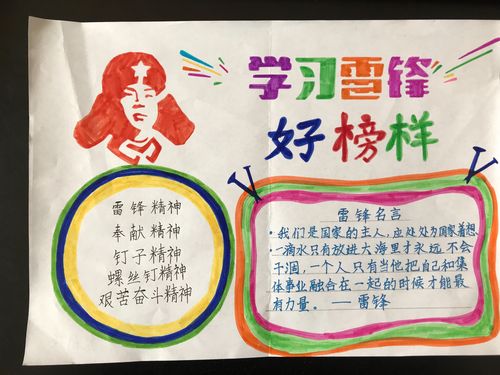 学习雷锋
好榜样
雷锋精神
奉献精神
钉子精神
螺丝钉精神
艰苦奋斗精神
雷锋名言
·我们是国家的主人,应处处为国家着想
·一滴水只有放进大海里才永远不会
干涸,一个人只有当他把自己和集
体事业融合在一起的时候才能最
有力量。——雷锋